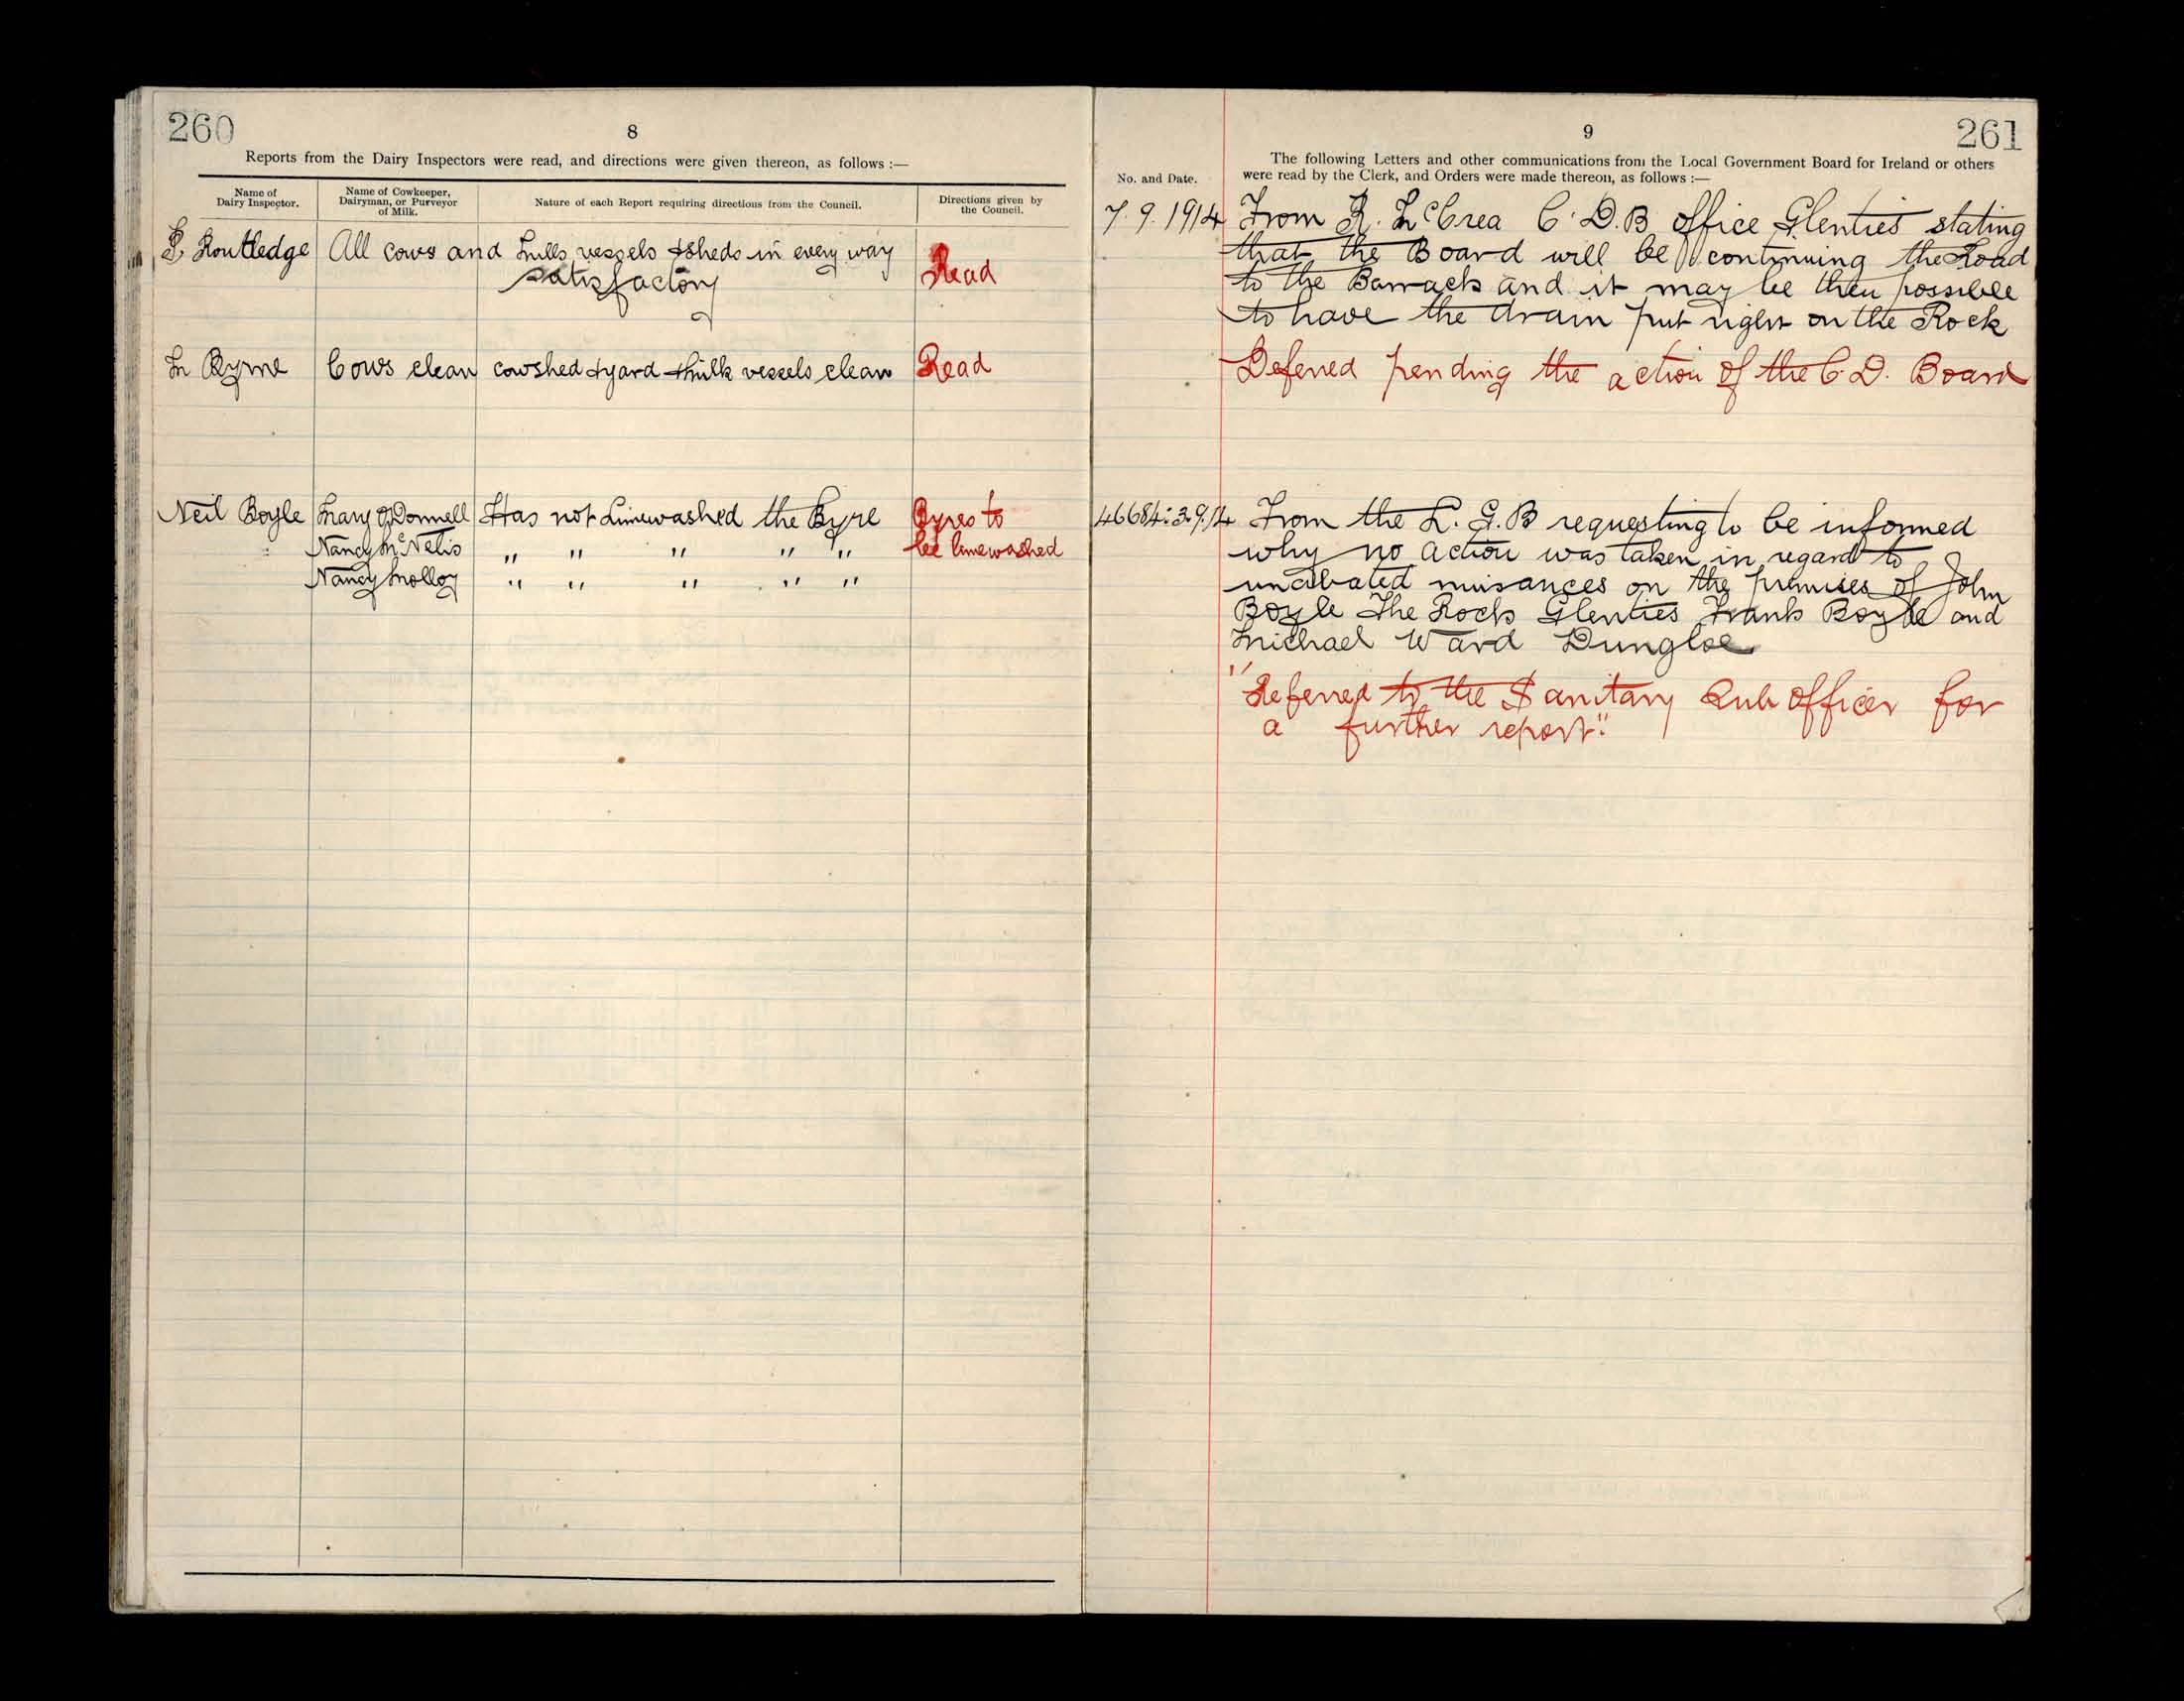 260
8
Reports from the Dairy Inspectors were read, and directions were given thereon, as follows :—
Name of Dairy Inspector.
Name of Cowkeeper, Dairyman, or Purveyor of Milk.
Nature of each Report requiring directions from the Council.
Directions given by the Council.
Routledge All cows and vessels & sheds in every way
satisfactory
Read
Byrne Cows clean cowshed & yard & milk vessels clean Read
Neil Boyle Mary O'Donnell Has not Limewashed the Byre Byres to
" Nancy McNelis " " " " " be limewashed
Nancy Molloy " " " " "
9
261
The following Letters and other communications from the Local Government Board for Ireland or others
No. and Date. were read by the Clerk, and Orders were made thereon, as follows :—
7.9.1914 From R. McCrea C.D.B office Glenties stating
that the Board will be continuing the Road
to the Barrack and it may be then possible
to have the drain put right on the Rock
Deferred pending the action of the C.D. Board
46684:3.9.14 From the L.G.B requesting to be informed
why no action was taken in regard to
unabated nuisances on the premises of John
Boyle The Rock Glenties Frank Boyle and
Michael Ward Dungloe
"Referred to the Sanitary Sub Officer for
a further report."